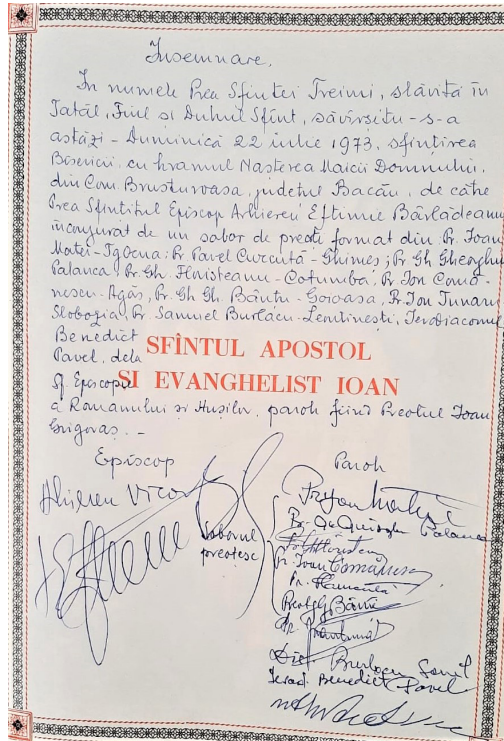 Însemnare,
In numele Prea Sfintei Treimi, slăvită în
Tatăl, Fiul si Duhul Sfînt, săvîrsitu-s-a
astăzi - Duminică 22 iulie 1973, sfințirea
Bisericii cu hramul Nașterea Maicii Domnului,
din Com. Brusturoasa, judetul Bacău, de către
Prea Sfintitul Episcop Arhiereu Eftimie Bârlădeanu
inconjurat de un sobor de preoti format din: Pr. Ioan
Matei - Tg Ocna; Pr Pavel - Ghimeș; Pr Gh Gheorghe
Palanca, Pr. Gh. - Cotumba; Pr Ion Comă-
nescu - Agăș, Pr. Gh Gh. Bântu - Goioasa, Pr. Ion
Slobozia, Pr. Samuel Burlacu - Leontinesti, Ierodiaconul
Benedict
Pavel, dela
SFÎNTUL APOSTOL
ȘI EVANGHELIST IOAN
Sf. Episcopie
a Romanului și Hușilor, paroh fiind Preotul Ioan
Grigoraș. -
Episcop
Paroh
Arhiereu
Eftimie
Soborul
preoțesc
Pr Ioan Matei
Pr. Gh Palanca
Pr. Ioan Comănescu
Pr.
Preot Gh Bântu
Pr.
Burlacu
Ierod. Benedict Pavel